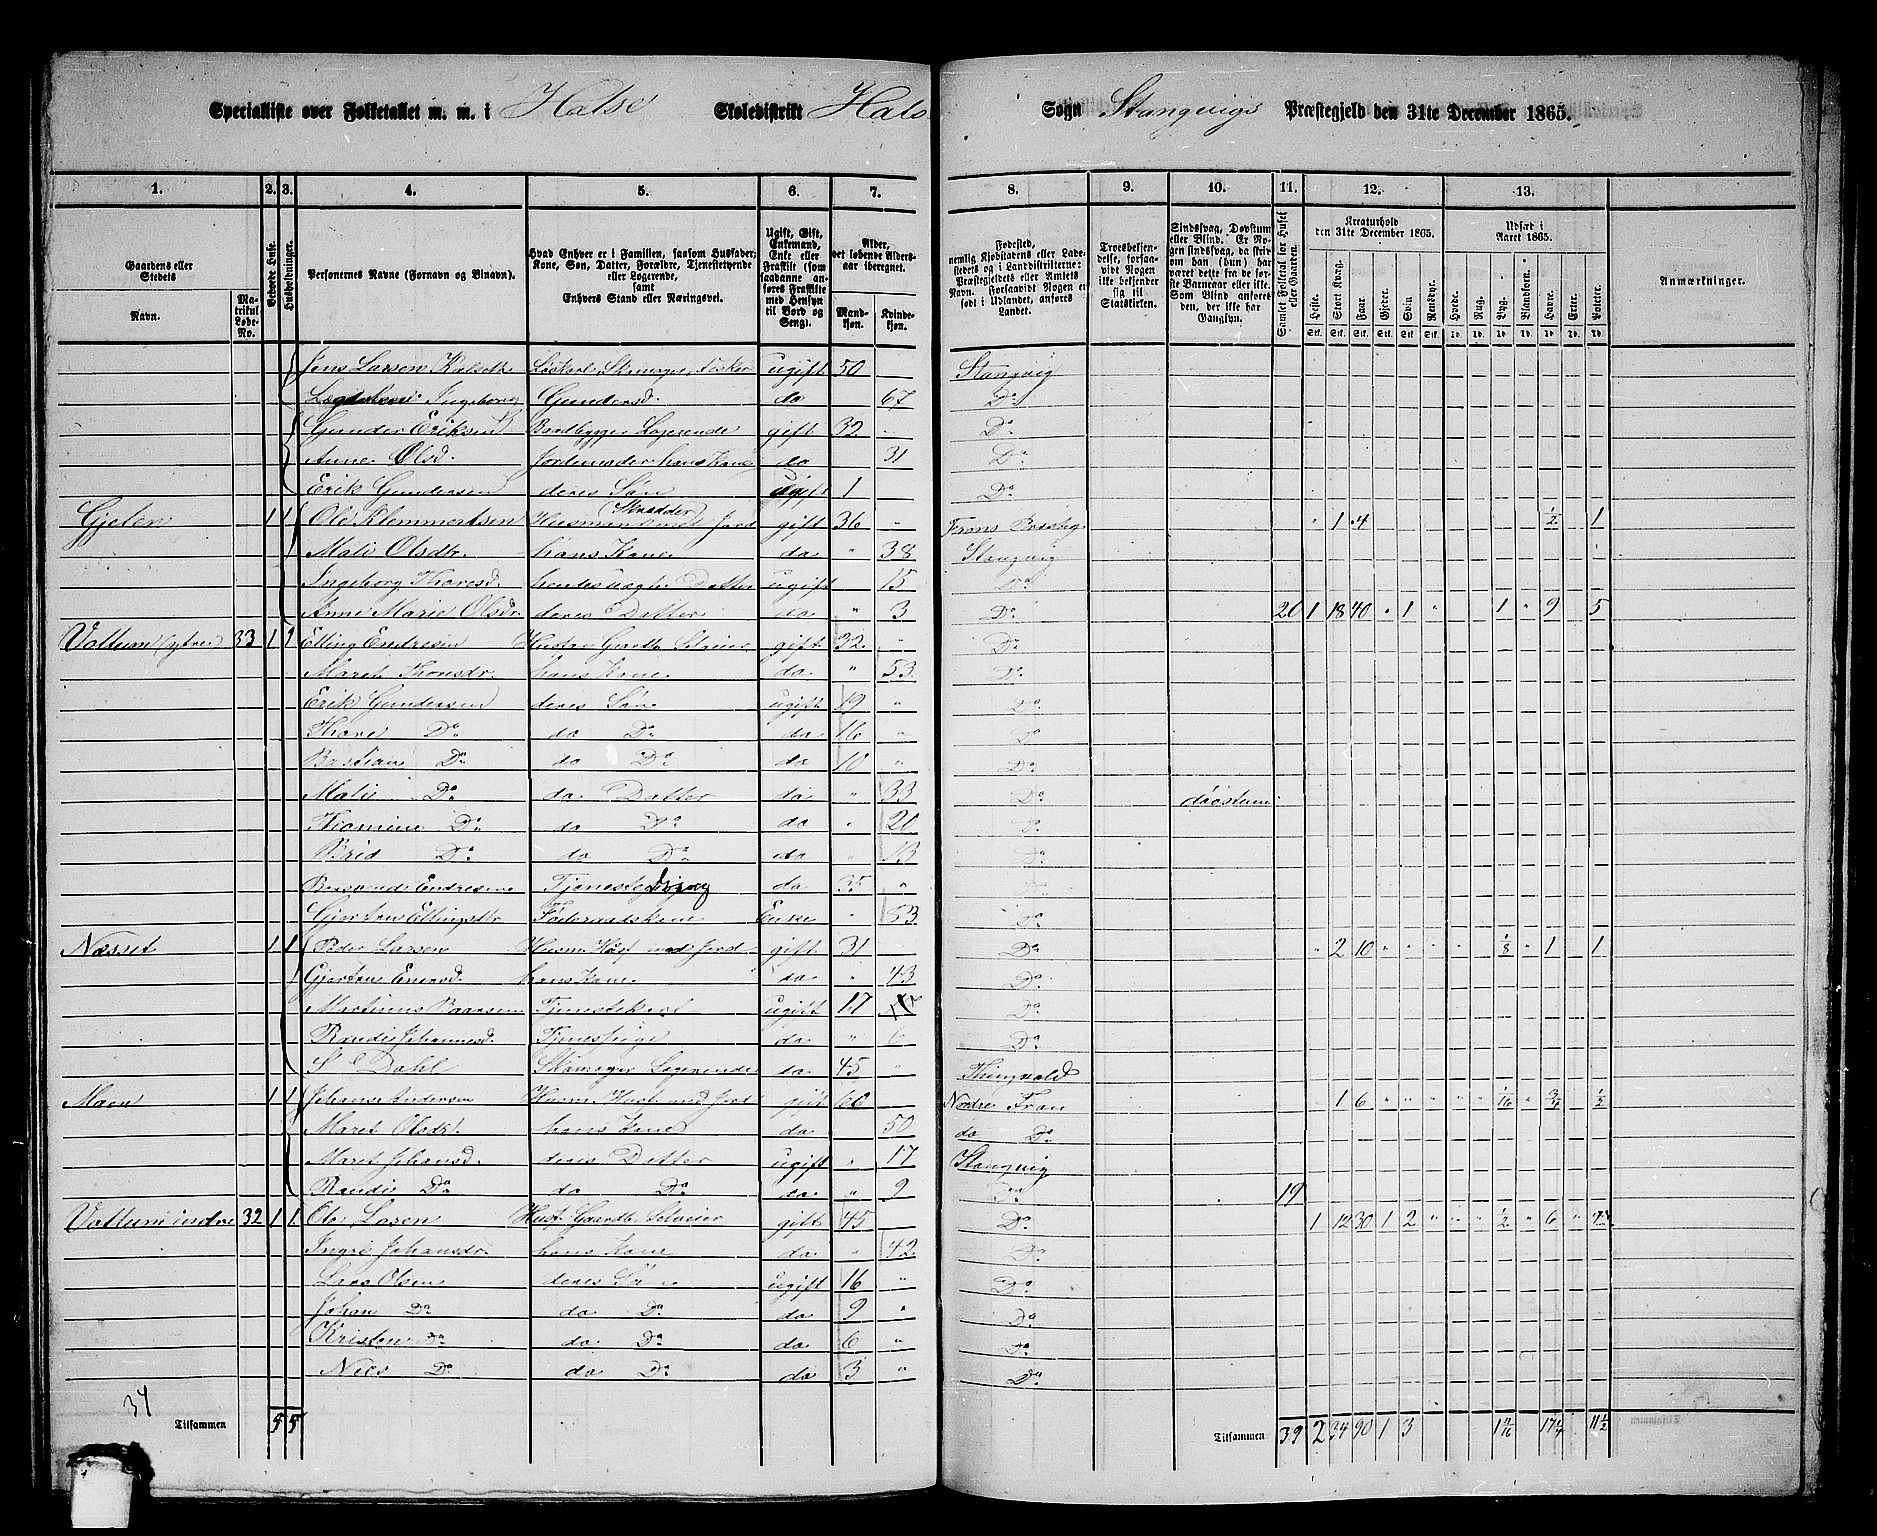 Specialliste over Folketallet m. m. i Halse Skoledistrikt Hals Sogn Stangvigs Præstegjeld den 31te December 1865.
1. 2. 3. 4. 5. 6. 7. 8. 9. 10. 11. 12. 13.
Gaardens eller Stedets Navn. Matrikul Løbe-No. Beboede Huse. Husholdninger. Personernes Navne (Fornavn og Binavn). Hvad Enhver er i Familien, saasom Husfader, Kone, Søn, Datter, Forældre, Tjenestetyende eller Logerende, samt Enhvers Stand eller Næringsvei. Ugift, Gift, Enkemand, Enke eller Fraskilt (som saadanne anføres Fraskilte med Hensyn til Bord og Seng). Alder, det løbende Aldersaar iberegnet. Mandkjøn. Kvindekjøn.
Fødested, nemlig Kjøbstadens eller Ladestedets og i Landdistrikterne: Præstegjeldets eller Amtets Navn. Forsaavidt Nogen er født i Udlandet, anføres Landet. Troesbekjendelse, forsaavidt Nogen ikke bekjender sig til Statskirken. Sindssvag, Døvstum eller Blind. Er Nogen sindssvag, da skrives han (hun) har været dette fra de første Barneaar eller ikke. Som Blind anføres den, der ikke har Gangsyn. Samlet Folketal for Huset eller Gaarden. Kreaturhold den 31te December 1865. Udsæd i Aaret 1865. Anmærkninger.
Heste. Stort Kvæg. Faar. Gjeder. Svin. Rensdyr. Hvede. Rug. Byg. Blandkorn. Havre. Erter. Poteter.
Jens Larsen Kalseth Løskarl, Skomager, Fisker ugift 50 Stangvig
Ingeborg Gundersd. do 67 Do
Gunder Eriksen Baadbygger Logerende gift 32 Do
Anne Olsd. Jordemoder hans Kone do 31 Do
Erik Gundersen deres Søn ugift 1 Do
Gjelen 1 1 Ole Klemmertsen Husmand med Jord (Skrædder) gift 36 1 4 1/2 1
Mali Olsdtr. hans Kone do " 38 Stangvig
Ingeborg Thoresd. hendes uægte Datter ugift 15 Do
Anne Marie Olsdr. deres Datter do " 3 Do 20 1 18 40 " 1 " 1 " 9 5
Valtum (ytre) 33 1 1 Elling Endresen Husfar Gaardb. Selveier gift 32 " Do
Maret Thoresdr. hans Kone do " 53 Do
Erik Gundersen deres Søn ugift 19 " Do
Thore Do do Do do 16 " Do
Bastian Do do Do do 10 " Do
Mali Do do Datter do " 33 Do døvstum
Do do Do do " 20 Do
Brid Do do Do do " 13 Do
Endresen Tjenestedreng do 35 "
Gjertru Ellingsdtr Føderaadskone Enke " 83 Do
Næsset 1 1 Peder Larsen Husm. med Jord gift 31 Do " 2 10 " " " " 1/8 " 1 1
Gjertru Enersd. hans Kone do " 43 Do
Martinus Baarsen Tjenestekarl ugift 17 Do
Randi Johannesd. Tjenestpige do " 6 Do
Dahl Skomager Logerende do 45 " Thingvold
Moen 1 1 Johans Andersen Husm. med Jord gift 60 Nordre Fron 1 6 " " " " " 1/16 " 3/4 1/2
Maret Olsdt. hans Kone do 50 do Do
Maret Johansd. deres Datter ugift " 17 Stangvig
Randi Do do Do do " 9 Do 19
Valtum indre 32 1 1 Ole Larsen Husf. Gaardb. Selveier gift 45 Do 1 12 30 1 2 " " " 1/2 " 6 "
Ingri Johansdr. hans Kone do " 42 Do
Lars Olsen deres Søn ugift 16 " Do
Johan Do do Do do 9 " Do
Kristen Do do Do do 6 " Do
Niels Do do Do do 3 " Do
34
Tilsammen 5 5 Tilsammen 39 2 34 90 1 3 1 11/16 17 1/4 11 1/2